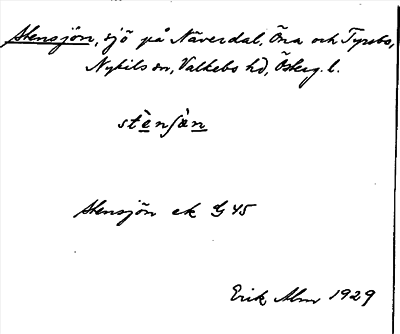 Stensjön, sjö på Näverdal, Öna och Tyrebo,
Nykils sn, Valkebo hd, Österg. l.
stènʃàn
Stensjön ek G 45
Erik Alm 1929